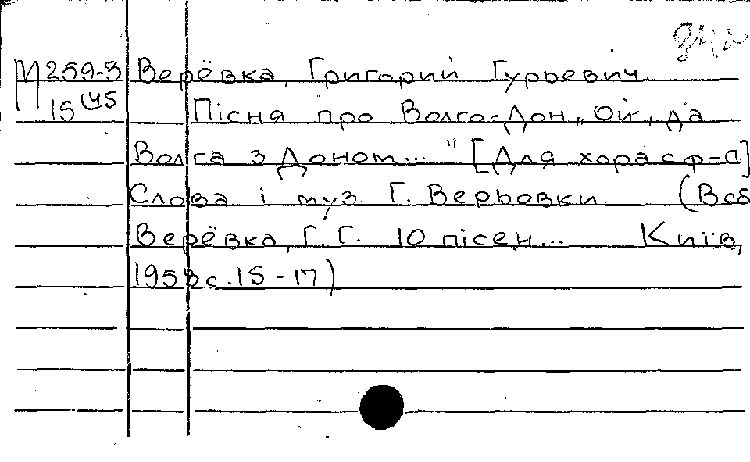 М 259-3 Верёвка, Григорий Гурьевич
15(45 Пісня про Волго-Дон „Ой, да
Волга з Доном..." [Для хора с ф-п]
Слова і муз Г. Верьовки (В сб
Верёвка, Г. Г. 10 пісен... Київ,
1953 с. 15-17)